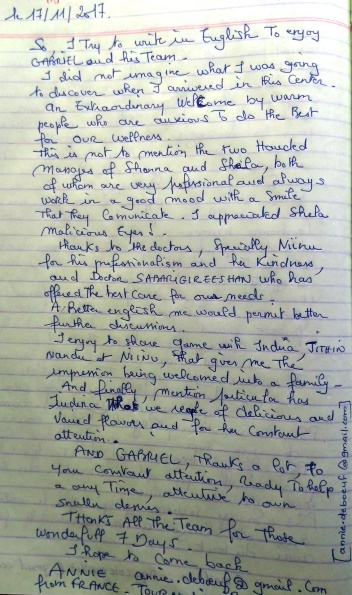 le 17/11/2017.
So, I Try to write in English To enjoy
GABRIEL and his Team.
I did not imagine what I was going
to discover when I arrivered in this Center.
An Extraordinary Welcome by warm
people who are anxious To do the Best
for our wellness.
This is not to mention the two Handed
Manages of Shanna and Shela, both
of whom are very professional and always
work in a good mood with a smile
that they Comunicate. I appreciated Shela
malicious Eyes!
Thanks to the doctors, Specially Niinu
for his professionalism and her Kindness,
and Doctor SABARIGIREESHAN who has
offered the best care for our needs.
A Better english me would permit better
further discussions.
I enjoy to share game with Indira, JITHIN
Nandu at NIINU, that gives me the
impression being welcomed into a family-
And finally, mention particular has
Indira we of delicious and
Varied flavors and for her Constant
attention.
AND GABRIEL, Thanks a lot to
your Constant attention, Ready To help
a any Time, attentive to our
smaller desires.
Thanks All the Team for those
wonderfull 7 Days.
I hope to Come back
ANNIE annie.deboeuf@gmail.com
from FRANCE.
[annie.deboeuf@gmail.com]